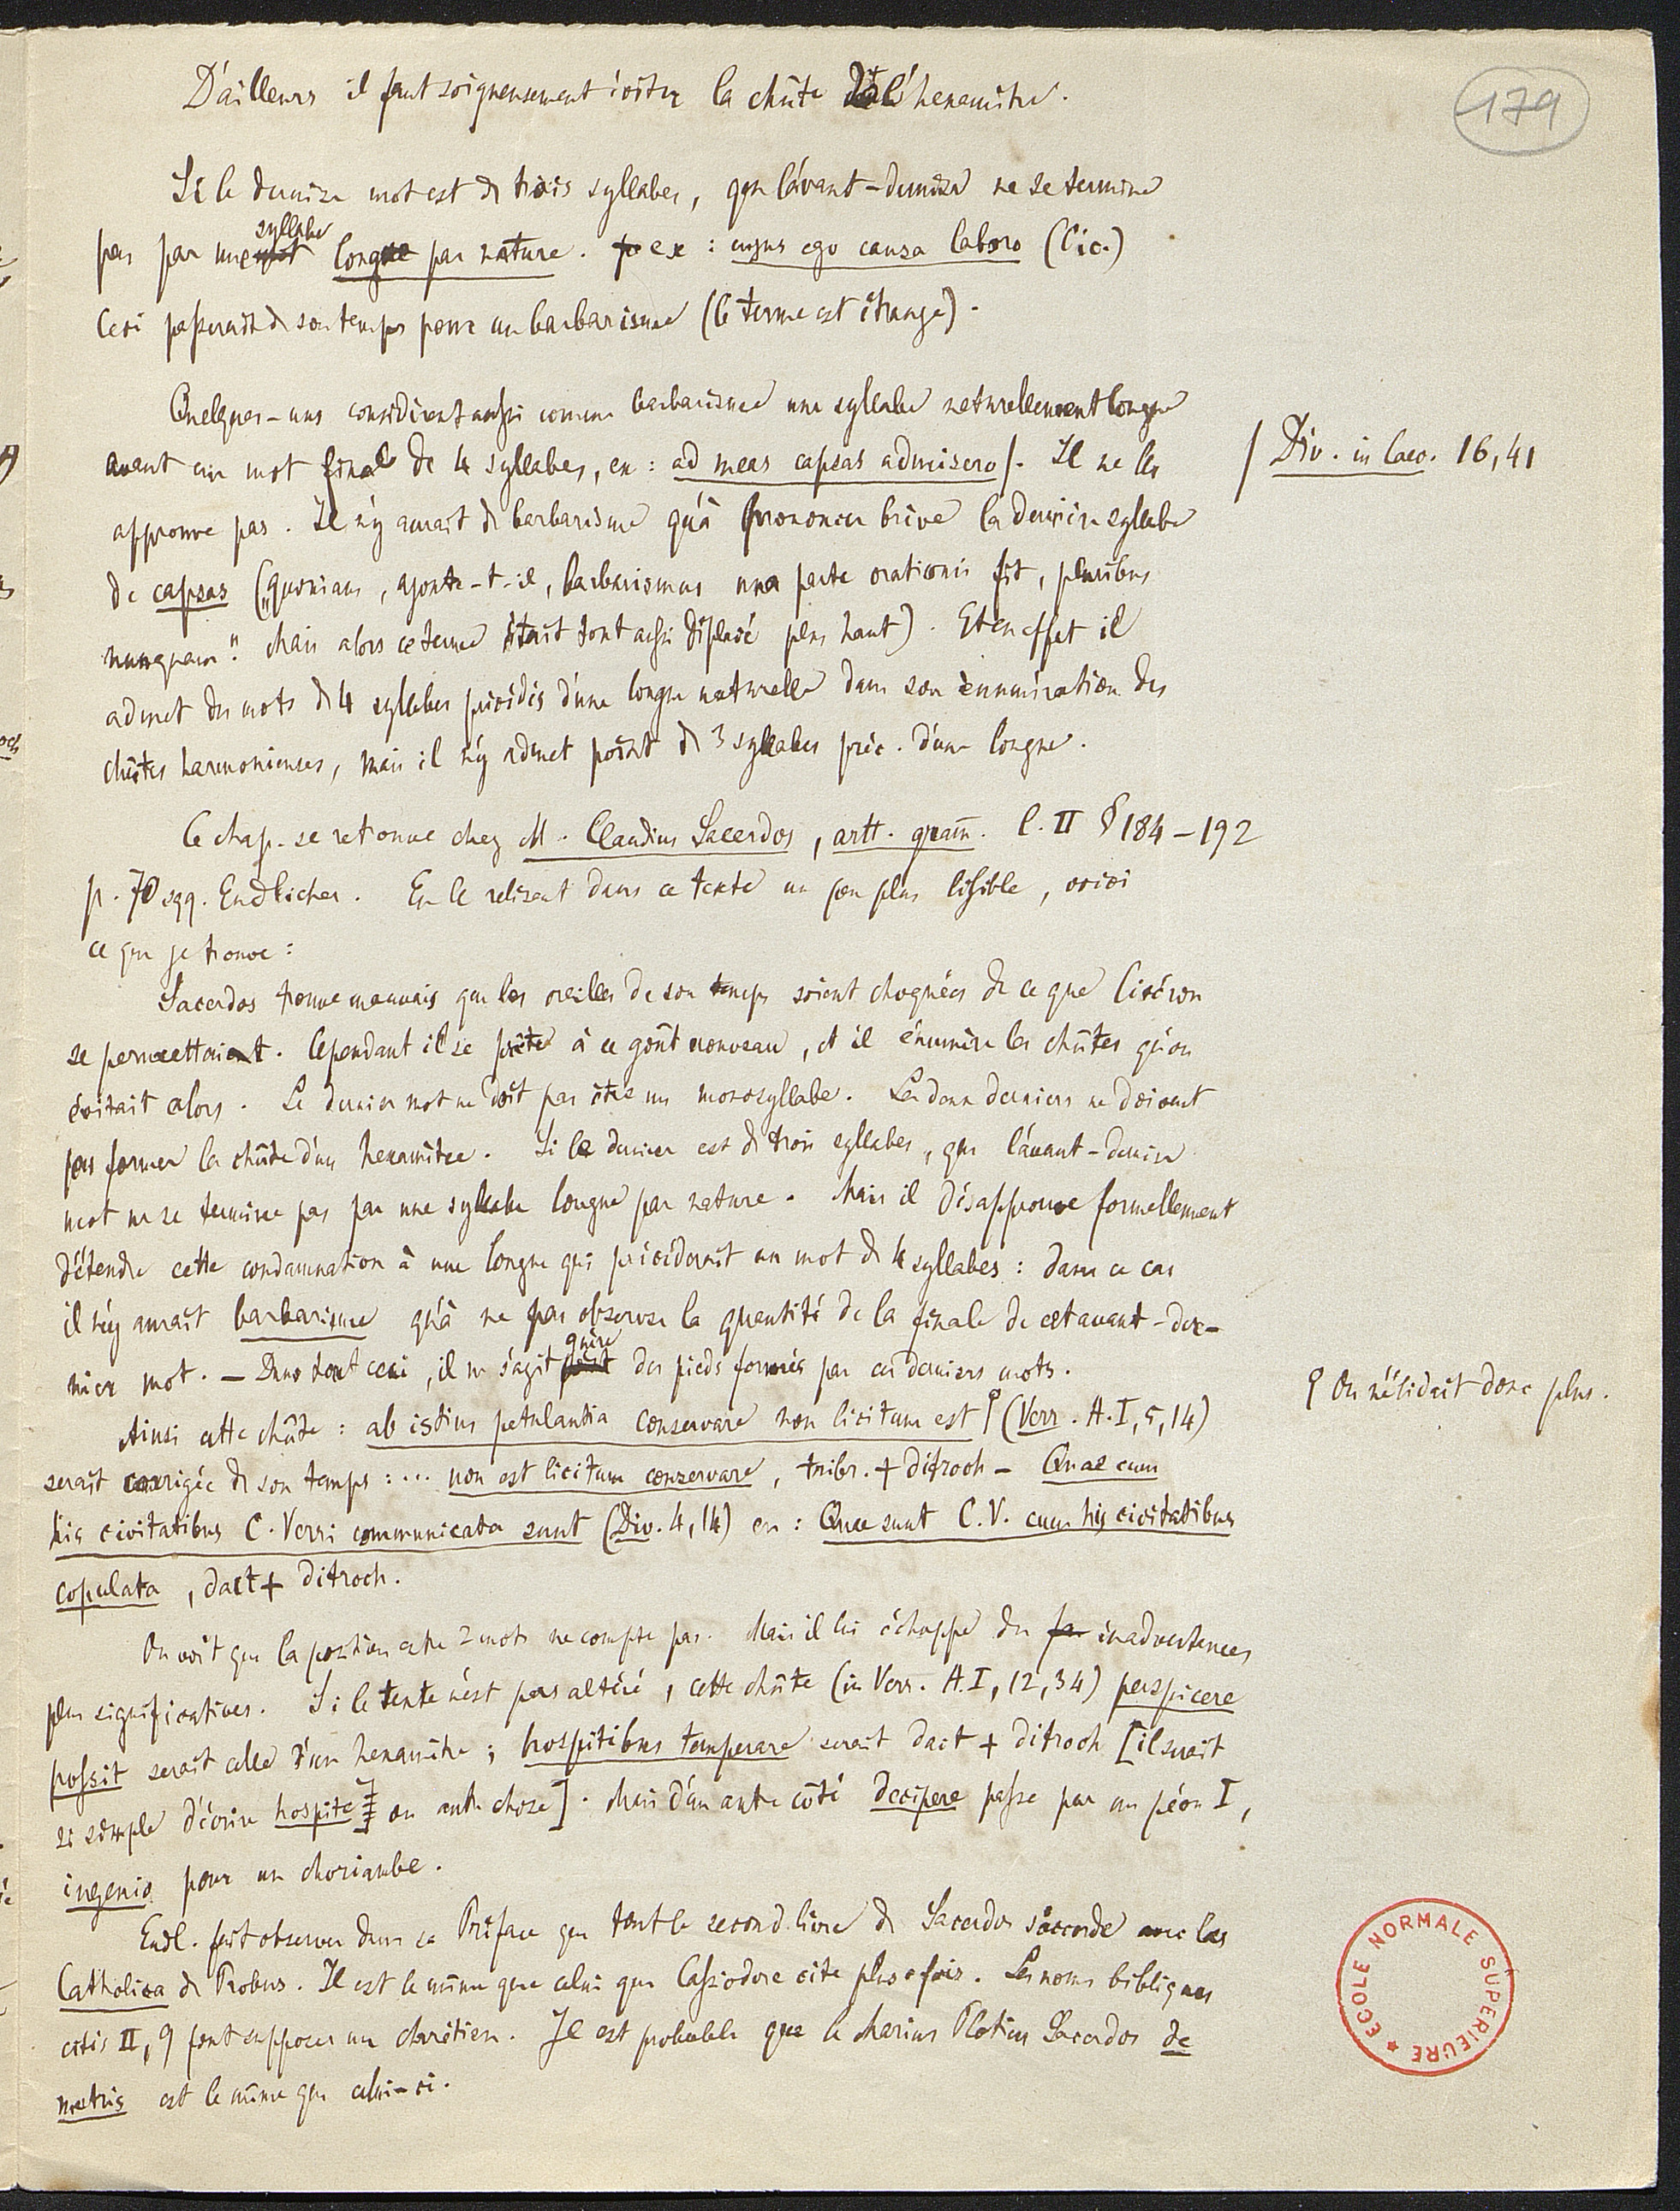 179
D'ailleurs il faut soigneusement éviter la chûte de l'hexamètre.
Si le dernier mot est de trois syllabes, que l'avant-dernier ne se termine
pas par une syllabe longue par nature. p ex : cujus ego causa laboro (Cic.)
Ceci passerait de son temps pour un barbarisme (le terme est étrange).
Quelques-uns considèrent aussi comme barbarisme une syllabe naturellement longue
avant un mot final de 4 syllabes, ex : ad meas capsas admisero/. Il ne les
/ Div. in Caec. 16, 41
approuve pas. Il n'y aurait de barbarisme qu'à prononcer brève la dernière syllabe
de capsas („quoniam, ajoute-t-il, barbarismus una parte orationis fit, pluribus
nunquam". Mais alors ce terme était tout aussi déplacé plus haut). Et en effet il
admet des mots de 4 syllabes précédés d'une longue naturelle dans son énumération des
chûtes harmonieuses, mais il n'y admet point de 3 syllabes préc. d'une longue.
Ce chap. se retrouve chez M. Claudius Sacerdos, artt. gram. l. II § 184-192
p. 70 sqq. Endlicher. En le relisant dans ce texte un peu plus lisible, voici
ce que je trouve :
Sacerdos trouve mauvais que les oreilles de son temps soient choquées de ce que Cicéron
se permettait. Cependant il se prête à ce goût nouveau, et il énumère les chûtes qu'on
évitait alors. Le dernier mot ne doit pas être un monosyllabe. Les deux derniers ne doivent
pas former la chûte d'un hexamètre. Si le dernier est de trois syllabes, que l'avant-dernier
mot ne se termine pas par une syllabe longue par nature. Mais il désapprouve formellement
d'étendre cette condamnation à une longue qui précéderait un mot de 4 syllabes : dans ce cas
il n'y aurait barbarisme qu'à ne pas observer la quantité de la finale de cet avant-der-
nier mot. — Dans tout ceci, il ne s'agit guère des pieds formés par ces derniers mots.
Ainsi cette chûte : ab istius petulantia conservare non licitum est ʕ (Verr. A. I, 5, 14)
ʕ On n'élidait donc plus.
serait corrigée de son temps : ... non est licitum conservare, tribr. + ditroch — Quae cum
his civitatibus C. Verri communicata sunt (Div. 4, 14) en : Quae sunt C. V. cum his civitatibus
copulata, dact + ditroch.
On voit que la position entre 2 mots ne compte pas. Mais il lui échappe des inadvertences
plus significatives. Si le texte n'est pas altéré, cette chûte (in Verr. A. I, 12, 34) perspicere
possit serait celle d'un hexamètre ; hospitibus temperare serait dact + ditroch [il serait
si simple d'écrire hospite ou autre chose]. Mais d'un autre côté decipere passe pour un péon I,
ingenio pour un choriambe.
Endl. fait observer dans sa Préface que tout le second livre de Sacerdos s'accorde avec les
Catholica de Probus. Il est le même que celui que Cassiodore cite plus. fois. Les noms bibliques
cités II, 9 font supposer un chrétien. Il est probable que le Marius Plotius Sacerdos de
metris est le même que celui-ci.
ECOLE NORMALE SUPERIEURE